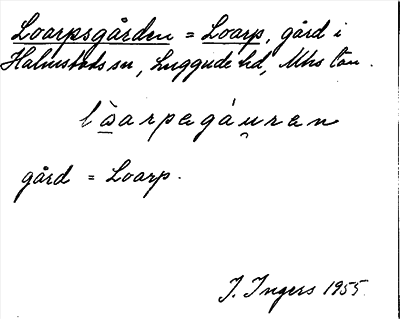 Loarpsgården = Loarp, gård i
Halmstads sn, Luggude hd, Mhs län.
lòarpagáuren
gård = Loarp.
I. Ingers 1955.